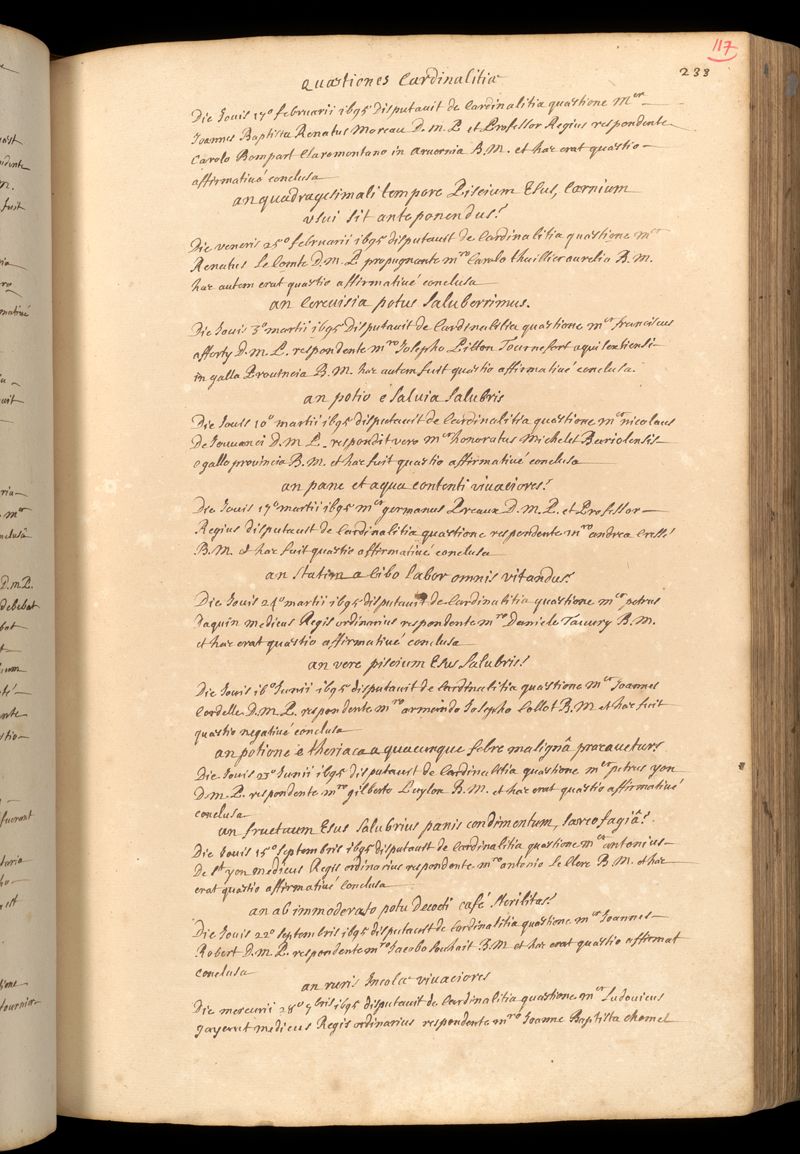 117
233
quæstiones Cardinalitiæ
Die Jouis 17º februarii 1695 Disputauit de Cardinalitia quæstione mer
Joannes Baptista Renatus Moreau D. m. P. et Professor Regius respondente
Carolo Bompart Claromontano in aruernia B.M. et hæc erat quæstio
affirmatiué conclusa
an quadragesimali tempore Piscium Esus, carnium
vsui sit anteponendus?
Die veneris 25º februarii 1695 disputauit de Cardinalitia quæstione mer
Renatus Le Comte D.m.P. propugnante mro Carolo thuillier aurelia B.M.
hæc autem erat quæstio affirmatiué conclusa
an Cereuisia potus saluberrimus.
Die Jouis 3º martii 1695 Disputauit de Cardinalitia quæstione mer franciscus
afforty D.m.P. respondente mro Josepho Pitton Tournefort aquisextiensi
in galla Prouincia B.M. hæc autem fuit quæstio affirmatiué conclusa.
an potio é saluia salubris
Die Jouis 10º martii 1695 disputauit de Cardinalitia quæstione mer nicolaus
De Jouuanci D.m.P. respondit vero mer honoratus Michelet Bariolensis
é gallo prouincia B.M. et hæc fuit quæstio affirmatiué conclusa
an pane et aqua contenti viuaciores?
Die Jouis 17º martii 1695 mer germanus Preaux D.m.P. et Professor
Regius disputauit de Cardinalitia quæstione respondente mro andrea Cressé
B.M. et hæc fuit quæstio affirmatiué conclusa
an statim a Cibo labor omnis vitandus?
Die Jouis 24º martii 1695 disputauit de Cardinalitia quæstione mer petrus
Daquin medicus Regis ordinarius respondente mro Daniele Tauury B.M.
et hæc erat quæstio affirmatiué conclusa
an vere piscium Esus salubris?
Die Jouis 16º Junii 1695 disputauit de Cardinalitia quæstione mer Joannes
Cordelle D.m.P. respondente mro armando Josepho Collot B.M. et hæc fuit
quæstio negatiué conclusa
an potione é theriaca a quacunque febre malignâ præcauetur?
Die Jouis 23º Junii 1695 disputauit de Cardinalitia quæstione mer petrus yon
D.m.P. respondente mro gilberto Puylon B.M. et hæc erat quæstio affirmatiué
conclusa
an fructuum Esus salubrius panis condimentum, sarcofagiâ?
Die Jouis 15º septembris 1695 disputauit de Cardinalitia quæstione mer antonius
De St yon medicus Regis ordinarius respondente mro antonio Le Clerc B.M. et hæc
erat quæstio affirmatiué conclusa
an ab immoderato potu Decocti café sterilitas?
Die Jouis 22º septembris 1695 disputauit de Cardinalitia quæstione mer Joannes
Robert D.m.P. respondente mro Jacobo souhait B.M et hæc erat quæstio affirmat
conclusa
an ruris Incolæ viuaciores
Die mercurii 28º 7bris 1695 disputauit de Cardinalitia quæstione mer Ludouicus
gayant medicus Regis ordinarius respondente mro Joanne Baptista chomel